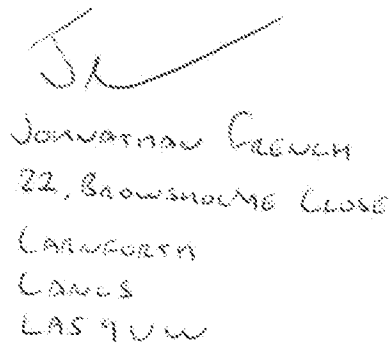 JOHNATHAN CLENCH
22, BROWSHOLME CLOSE
CARNFORTH
LANCS
LA5 9UW